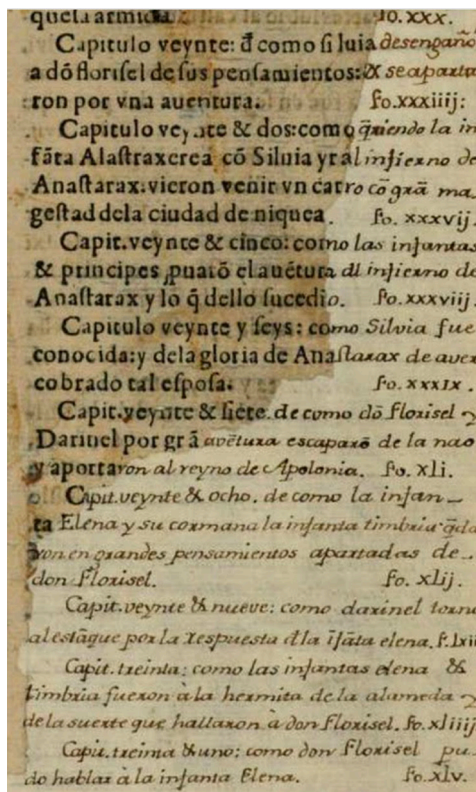 quela armida fo. xxx.
Capitulo veynte: đ como siluia desengaño
a dō florisel de sus pensamientos: & se aparta
ron por vna auentura. fo. xxxiiij:
Capitulo veynte & dos: como q̄riendo la in
fāta Alastraxerea cō Siluia yr al infierno de
Anastarax. vieron venir vn carro cō grā ma-
gestad dela ciudad de niquea. fo. xxxvij.
Capit. veynte & cinco: como las infantas
& principes ꝓuarō el auētura dl infierno de
Anastarax y lo q̄ dello sucedio. fo. xxxviij.
Capitulo veynte y seys: como Silvia fue
conocida: y dela gloria de Anastarax de aver
cobrado tal esposa. fo. xxxix.
Capit. veynte & siete. de como dō florisel y
Darinel por grā avētura escaparō de la nao
y aportaron al reyno de Apolonia. fo. xli.
Capit. veynte & ocho. de como la infan-
ta Elena y su cormana la infanta timbria q̄da
ron en grandes pensamientos apartadas de-
don Florisel. fo. xlij.
Capit. veynte & nueve: como darinel torno
al estāque por la respuesta dla īfāta elena. f.
Capit. treinta: como las infantas elena &
timbria fueron a la hermita de la alameda y
de la suerte que hallaron a don Florisel. fo. xliiij
Capit. treinta & uno: como don Florisel pu-
do hablar a la infanta Elena. fo. xlv.